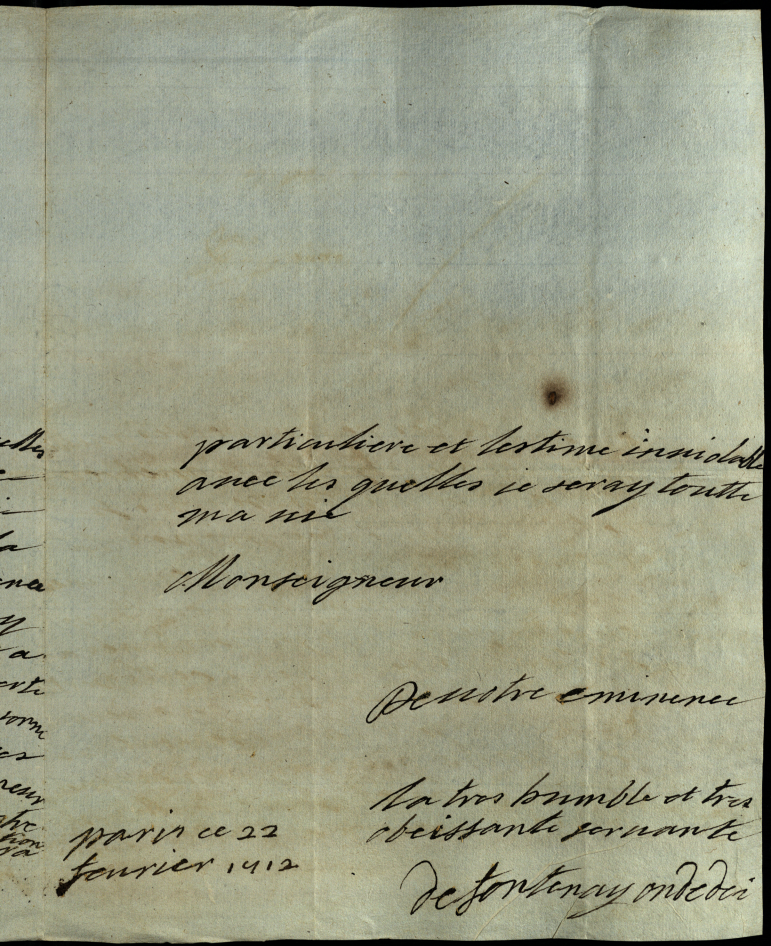 particuliere et lestime inuiolable
auec les quelles ie seray toutte
ma uie
Monseigneur
De uostre eminence
la tres humble et tres
obeissante seruante
de fontenay ondedei
paris ce 22
feurier 1712